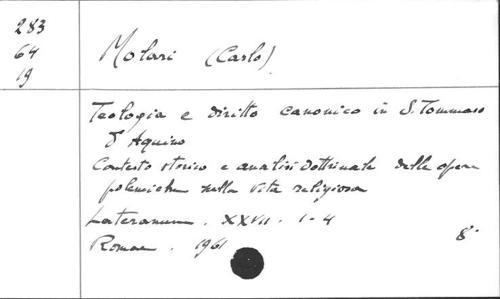 283
64
19
Molari (Carlo)
Teologia e diritto canonico in S. Tommaso
d'Aquino
Contesto storico e analisi dottrinale delle opere
polemiche sulla vita religiosa
Lateranum. XXVII. 1-4
Romae. 1961 8°